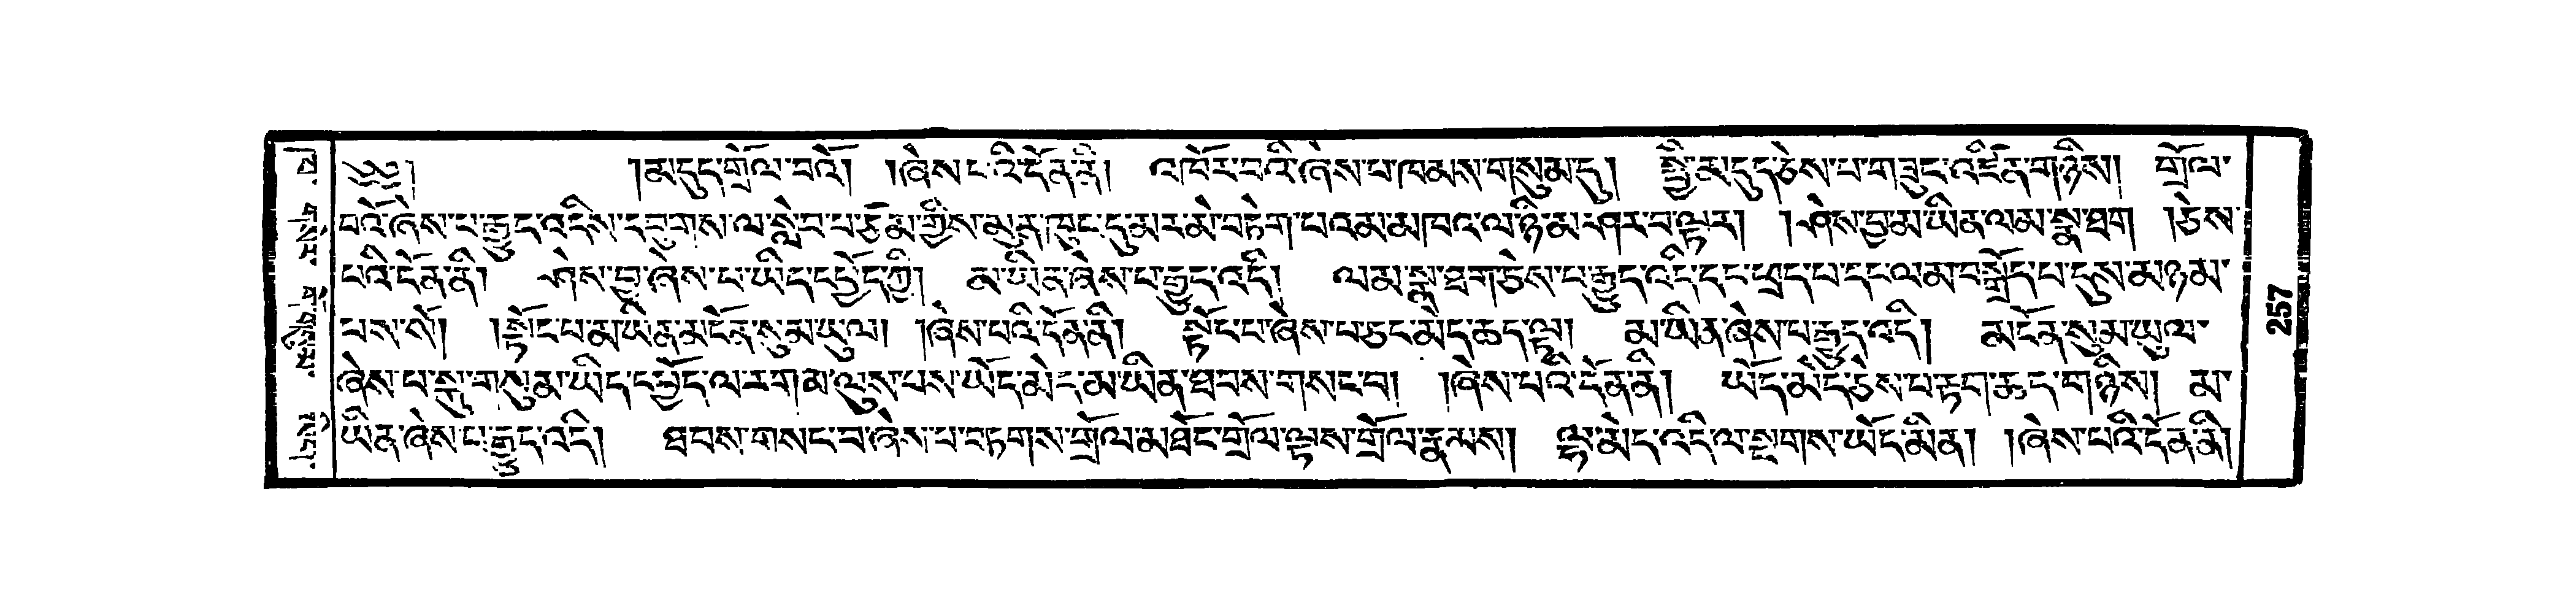 ༄༅། །མདུད་གྲོལ་བའོ། །ཞེས་པ་འི་དོན་ནི། འཁོར་བའི་ཞེས་པ་ཁམས་གསུམ་དུ། སྤྱི་མདུད་ཅེས་པ་གཟུང་འཛིན་གཉིས། གྲོལ་
བའོ་ཞེས་པ་རྒྱུད་འདིས་དབུགས་ལ་སླེབ་པ་ཙམ་གྱིས་མུན་ཁུང་དུ་མར་མེ་བཏེག་པའམ་མཁའ་ལ་ཉི་མ་ཤར་བ་ལྟར། །ཤེས་བྱ་མ་ཡིན་ལམ་སྣ་ཐག །ཅེས་
པའི་དོན་ནི། ཤེས་བྱ་ཞེས་པ་ཡིད་དཔྱོད་ཀྱི། མ་ཡིན་ཞེས་པ་རྒྱུད་འདི། ལམ་སྣ་ཐག་ཅེས་པ་རྒྱུད་འདི་དང་ཕྲད་པ་དང་ལམ་བགྲོད་པ་དུས་མཉམ་
པས་སོ། །སྟོང་པ་མ་ཡིན་མངོན་སུམ་ཡུལ། །ཞེས་པའི་དོན་ནི། སྟོང་པ་ཞེས་པ་ཅང་མེད་ཆད་ལྟ། མ་ཡིན་ཞེས་པ་རྒྱུད་འདི། མངོན་སུམ་ཡུལ་
ཞེས་པ་སྐུ་གསུམ་ཡིད་དཔྱོད་ལ་རག་མ་ལུས་པས་ཡོད་མེད་མ་ཡིན་ཐབས་གསང་བ། །ཞེས་པའི་དོན་ནི། ཡོད་མེད་ཅེས་པ་རྟག་ཆད་གཉིས། མ་
ཡིན་ཞེས་པ་རྒྱུད་འདི། ཐབས་གསང་བ་ཞེས་པ་བཏགས་གྲོལ་མཐོང་གྲོལ་ལྟས་གྲོལ་རྣམས། ལྟ་མེད་འདི་ལ་སྔགས་ཡོད་མིན། །ཞེས་པའི་དོན་ནི།
257